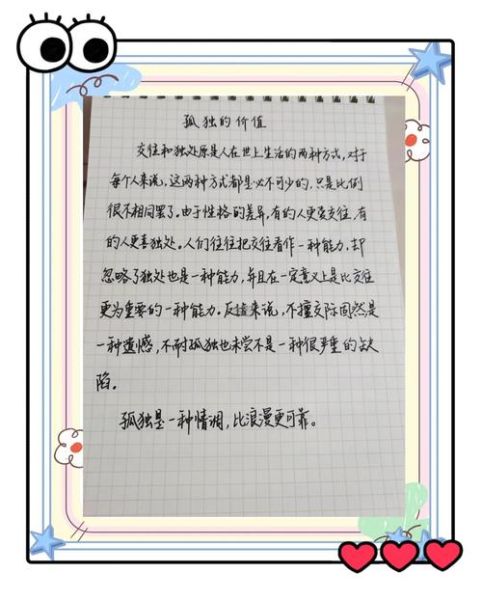 孤独的价值
交往和独处原是人在世上生活的两种方式,对于
每个人来说,这两种方式都是必不可少的,只是比例
很不相同罢了。由于性格的差异,有的人更爱交往,有
的人更喜独处。人们往往把交往看作一种能力,却
忽略了独处也是一种能力,并且在一定意义上是比交往
更为重要的一种能力。反过来说,不擅交际固然是
一种遗憾,不耐孤独也未尝不是一种很严重的缺
陷。
孤独是一种情调,比浪漫更可靠。